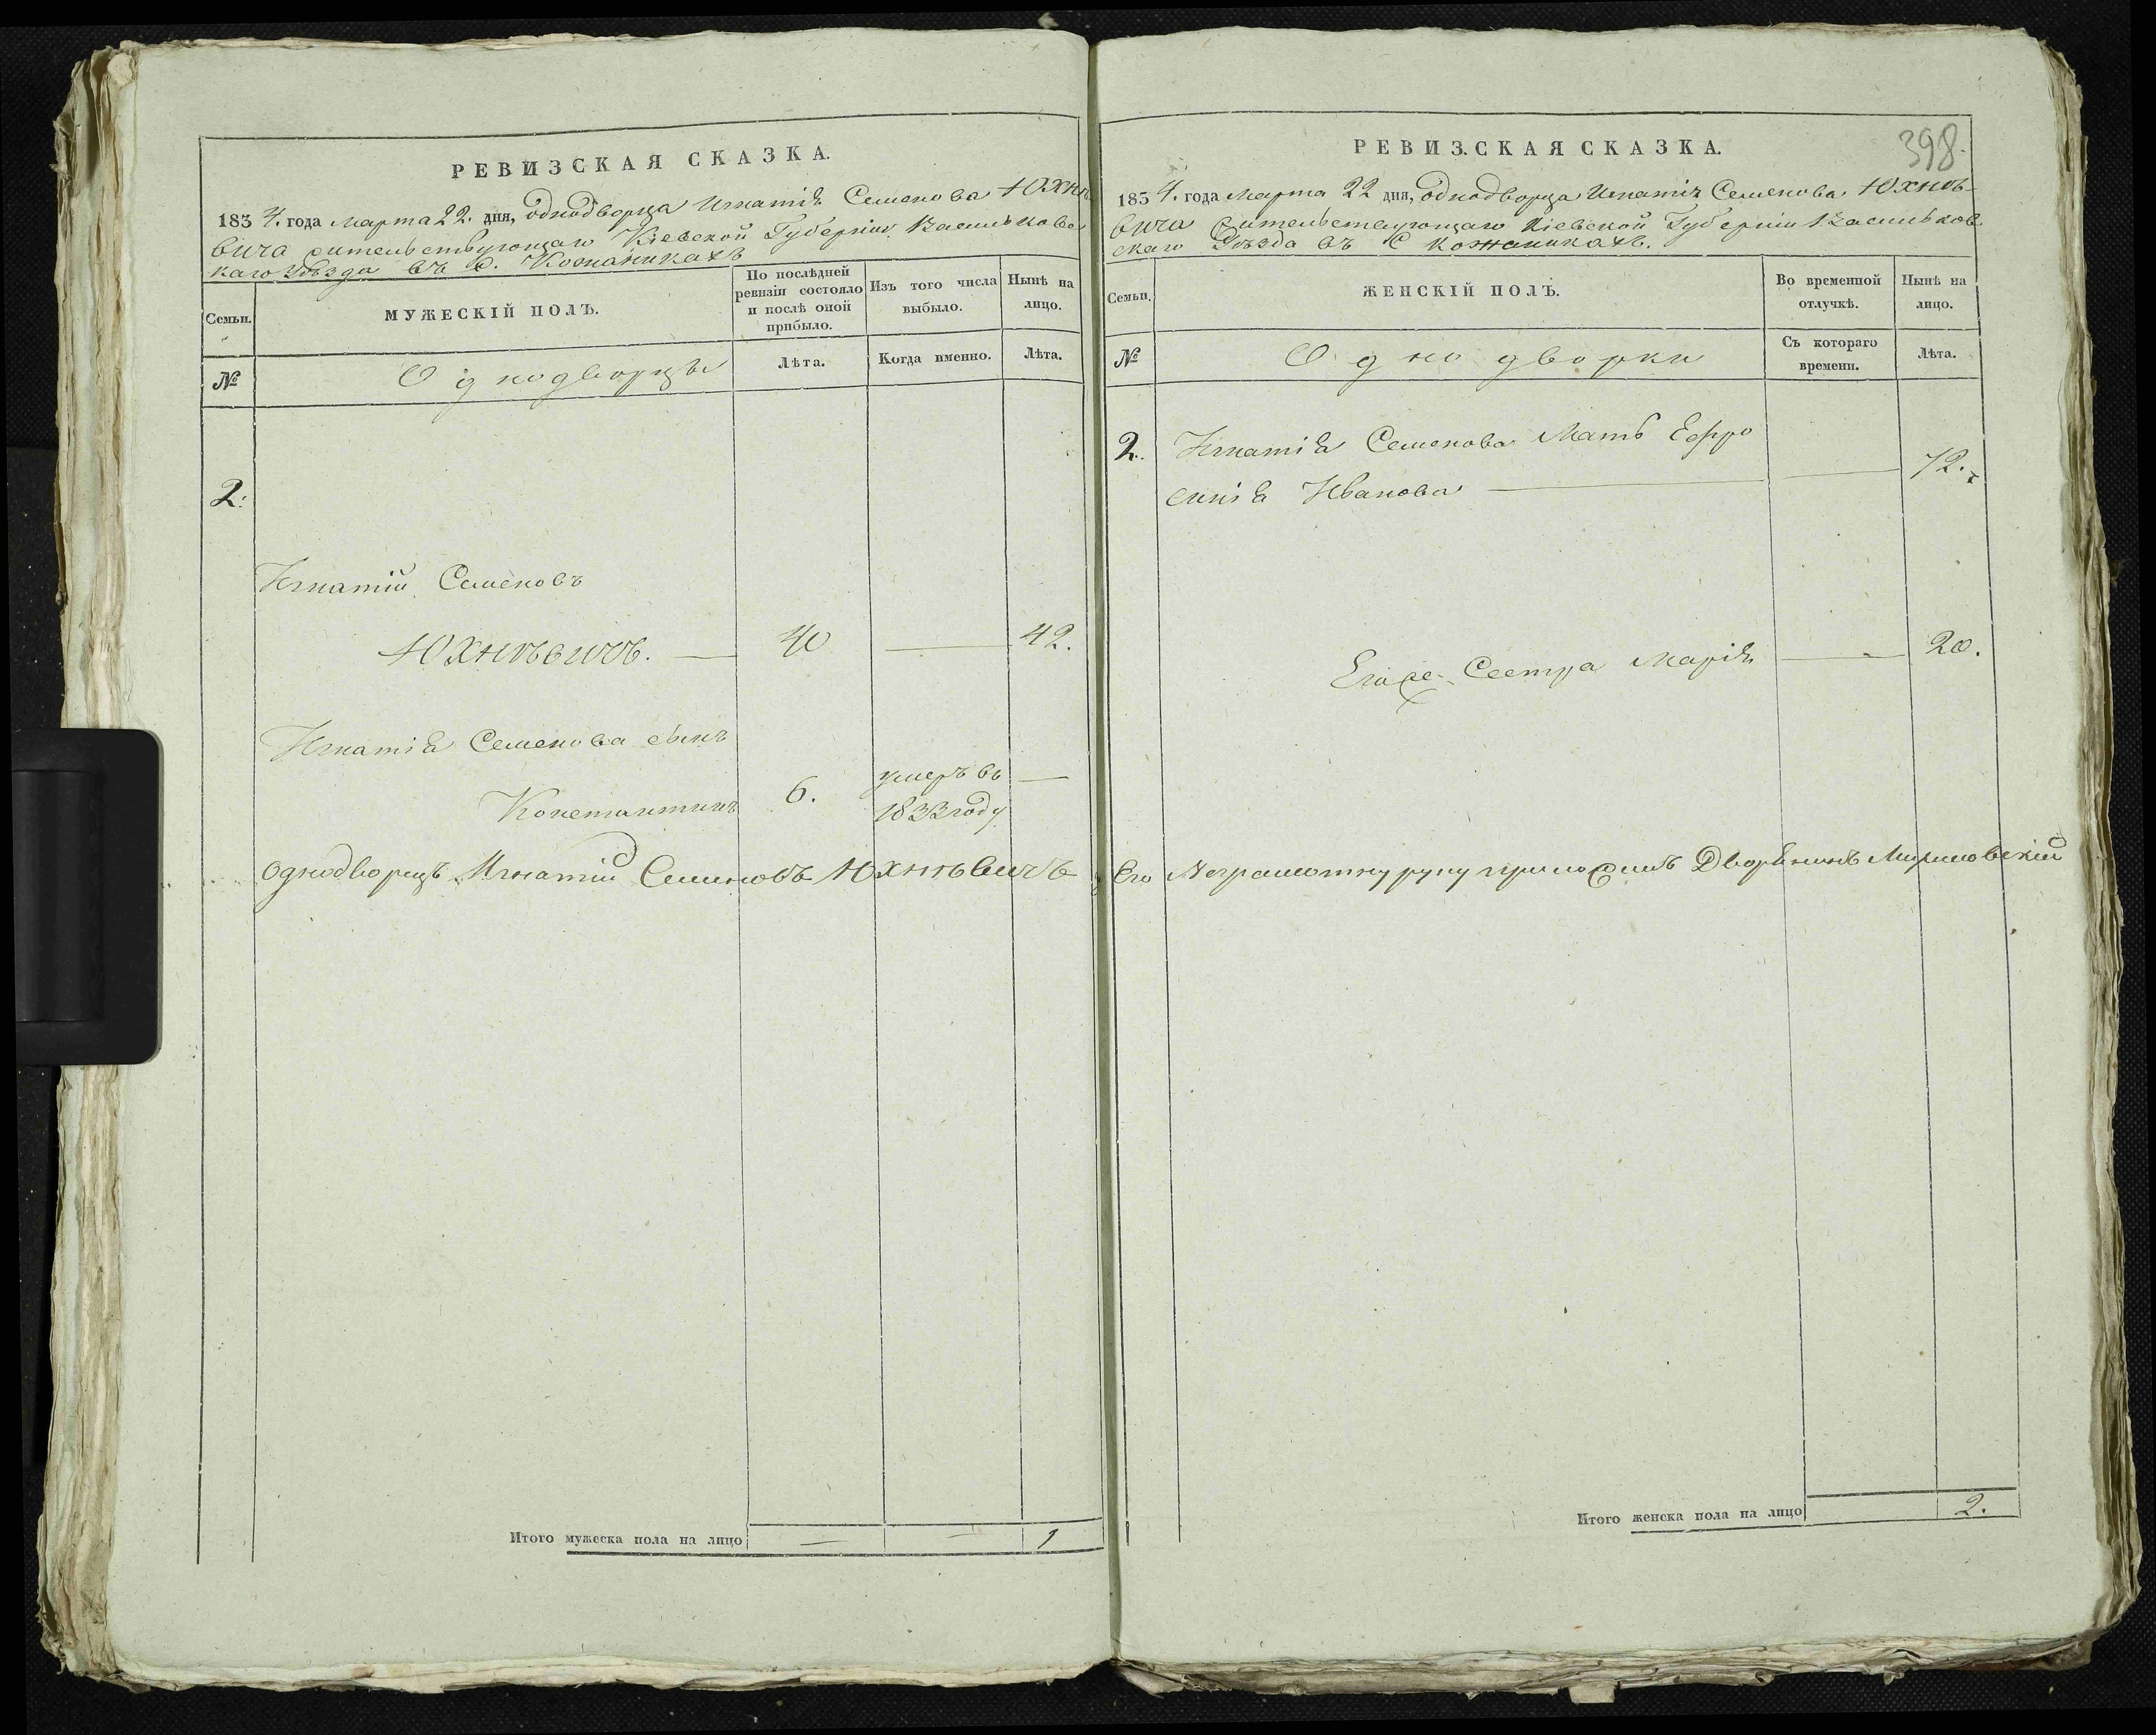 РЕВИЗСКАЯ СКАЗКА.
1834. года Марта 22. дня, однодворца Игнатія Семенова Юхнѣ
вича жительствующаго Кіевской Губерніи Васильковс
каго Уѣзда въ С. Кожаникахъ
Семьи.
МУЖЕСКІЙ ПОЛЪ.
По послѣдней
ревизіи состояло
и послѣ оной
прибыло.
Изъ того числа
выбыло.
Нынѣ на
лицо.
№
Однодворцы
Лѣта.
Когда именно.
Лѣта.
2.
Игнатій Семеновъ
Юхнѣвичъ. — 40 — 42.
Игнатія Семенова сынъ
Константинъ 6. умеръ въ —
1833 году
Однодворецъ Игнатій Семеновъ Юхнѣвичъ
Итого мужеска пола на лицо — — 1
398.
РЕВИЗСКАЯ СКАЗКА.
1834. года Марта 22 дня, однодворца Игнатія Семенова Юхнѣ-
вича жительствующаго Кіевской Губерніи Васильков
скаго Уѣзда въ С Кожаникахъ.
Семьи.
ЖЕНСКІЙ ПОЛЪ.
Во временной
отлучкѣ.
Нынѣ на
лицо.
№
Однодворки
Съ котораго
времени.
Лѣта.
2. Игнатія Семенова Мать Ефро
синія Иванова — — 72.
Его же Сестра Марія — 20.
Его Неграмотну руку приложилъ Дворянинъ
Итого женска пола на лицо 2.